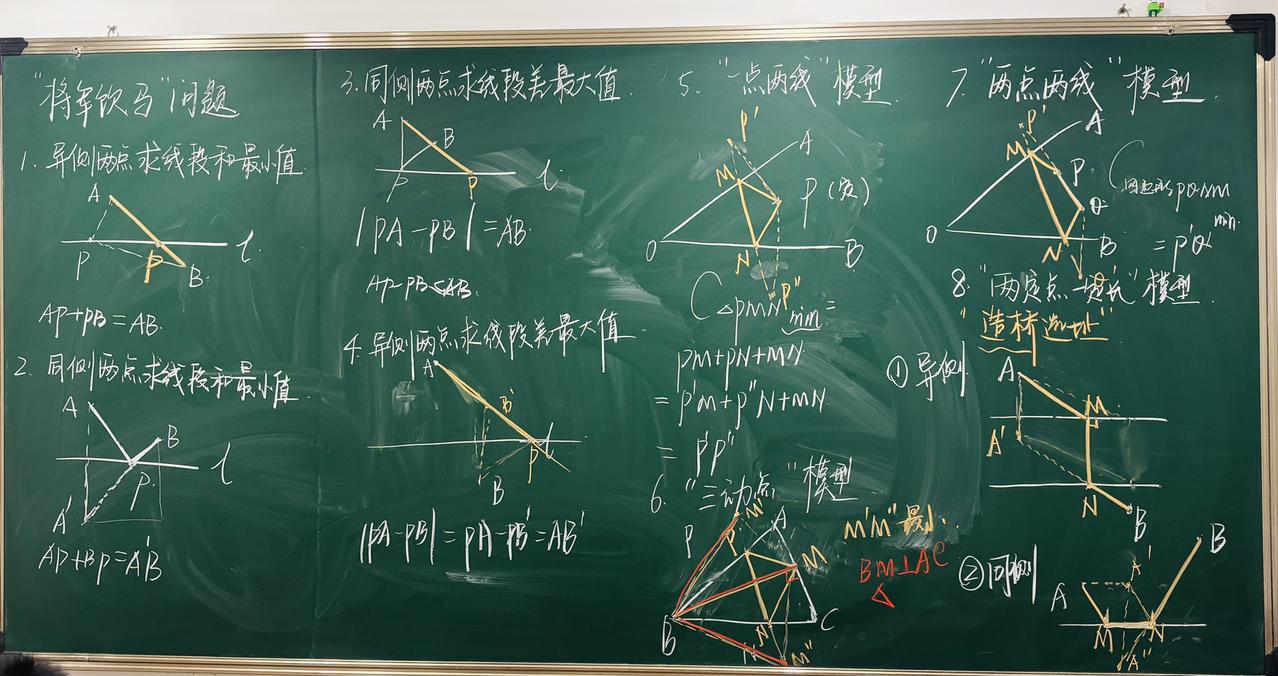 "将军饮马"问题
1. 异侧两点求线段和最小值.
A
P
P
B
l
AP+PB=AB.
2. 同侧两点求线段和最小值.
A
B
l
P
A'
AP+BP=A'B
3. 同侧两点求线段差最大值.
A
B
P
P
l
|PA-PB|=AB
AP-PB<AB.
4. 异侧两点求线段差最大值
A
B'
l
P
B
|PA-PB|=PA-PB'=AB'
5. "一点两线"模型
P'
A
M
P(定)
O
N
B
P"
C△PMN min=
PM+PN+MN
=P'M+P"N+MN.
=P'P"
6. "三动点"模型.
M'
P
P
A
M
B
N
C
M"
M'M"最小.
BM⊥AC
7. "两点两线"模型.
P'
A
M
P
Q
O
N
B
Q'
C四边形PQNM min.
=P'Q'
8. "两定点一定长"模型
"造桥选址"
①异侧.
A
M
A'
N
B
②同侧
A
A'
B
M
N
A"